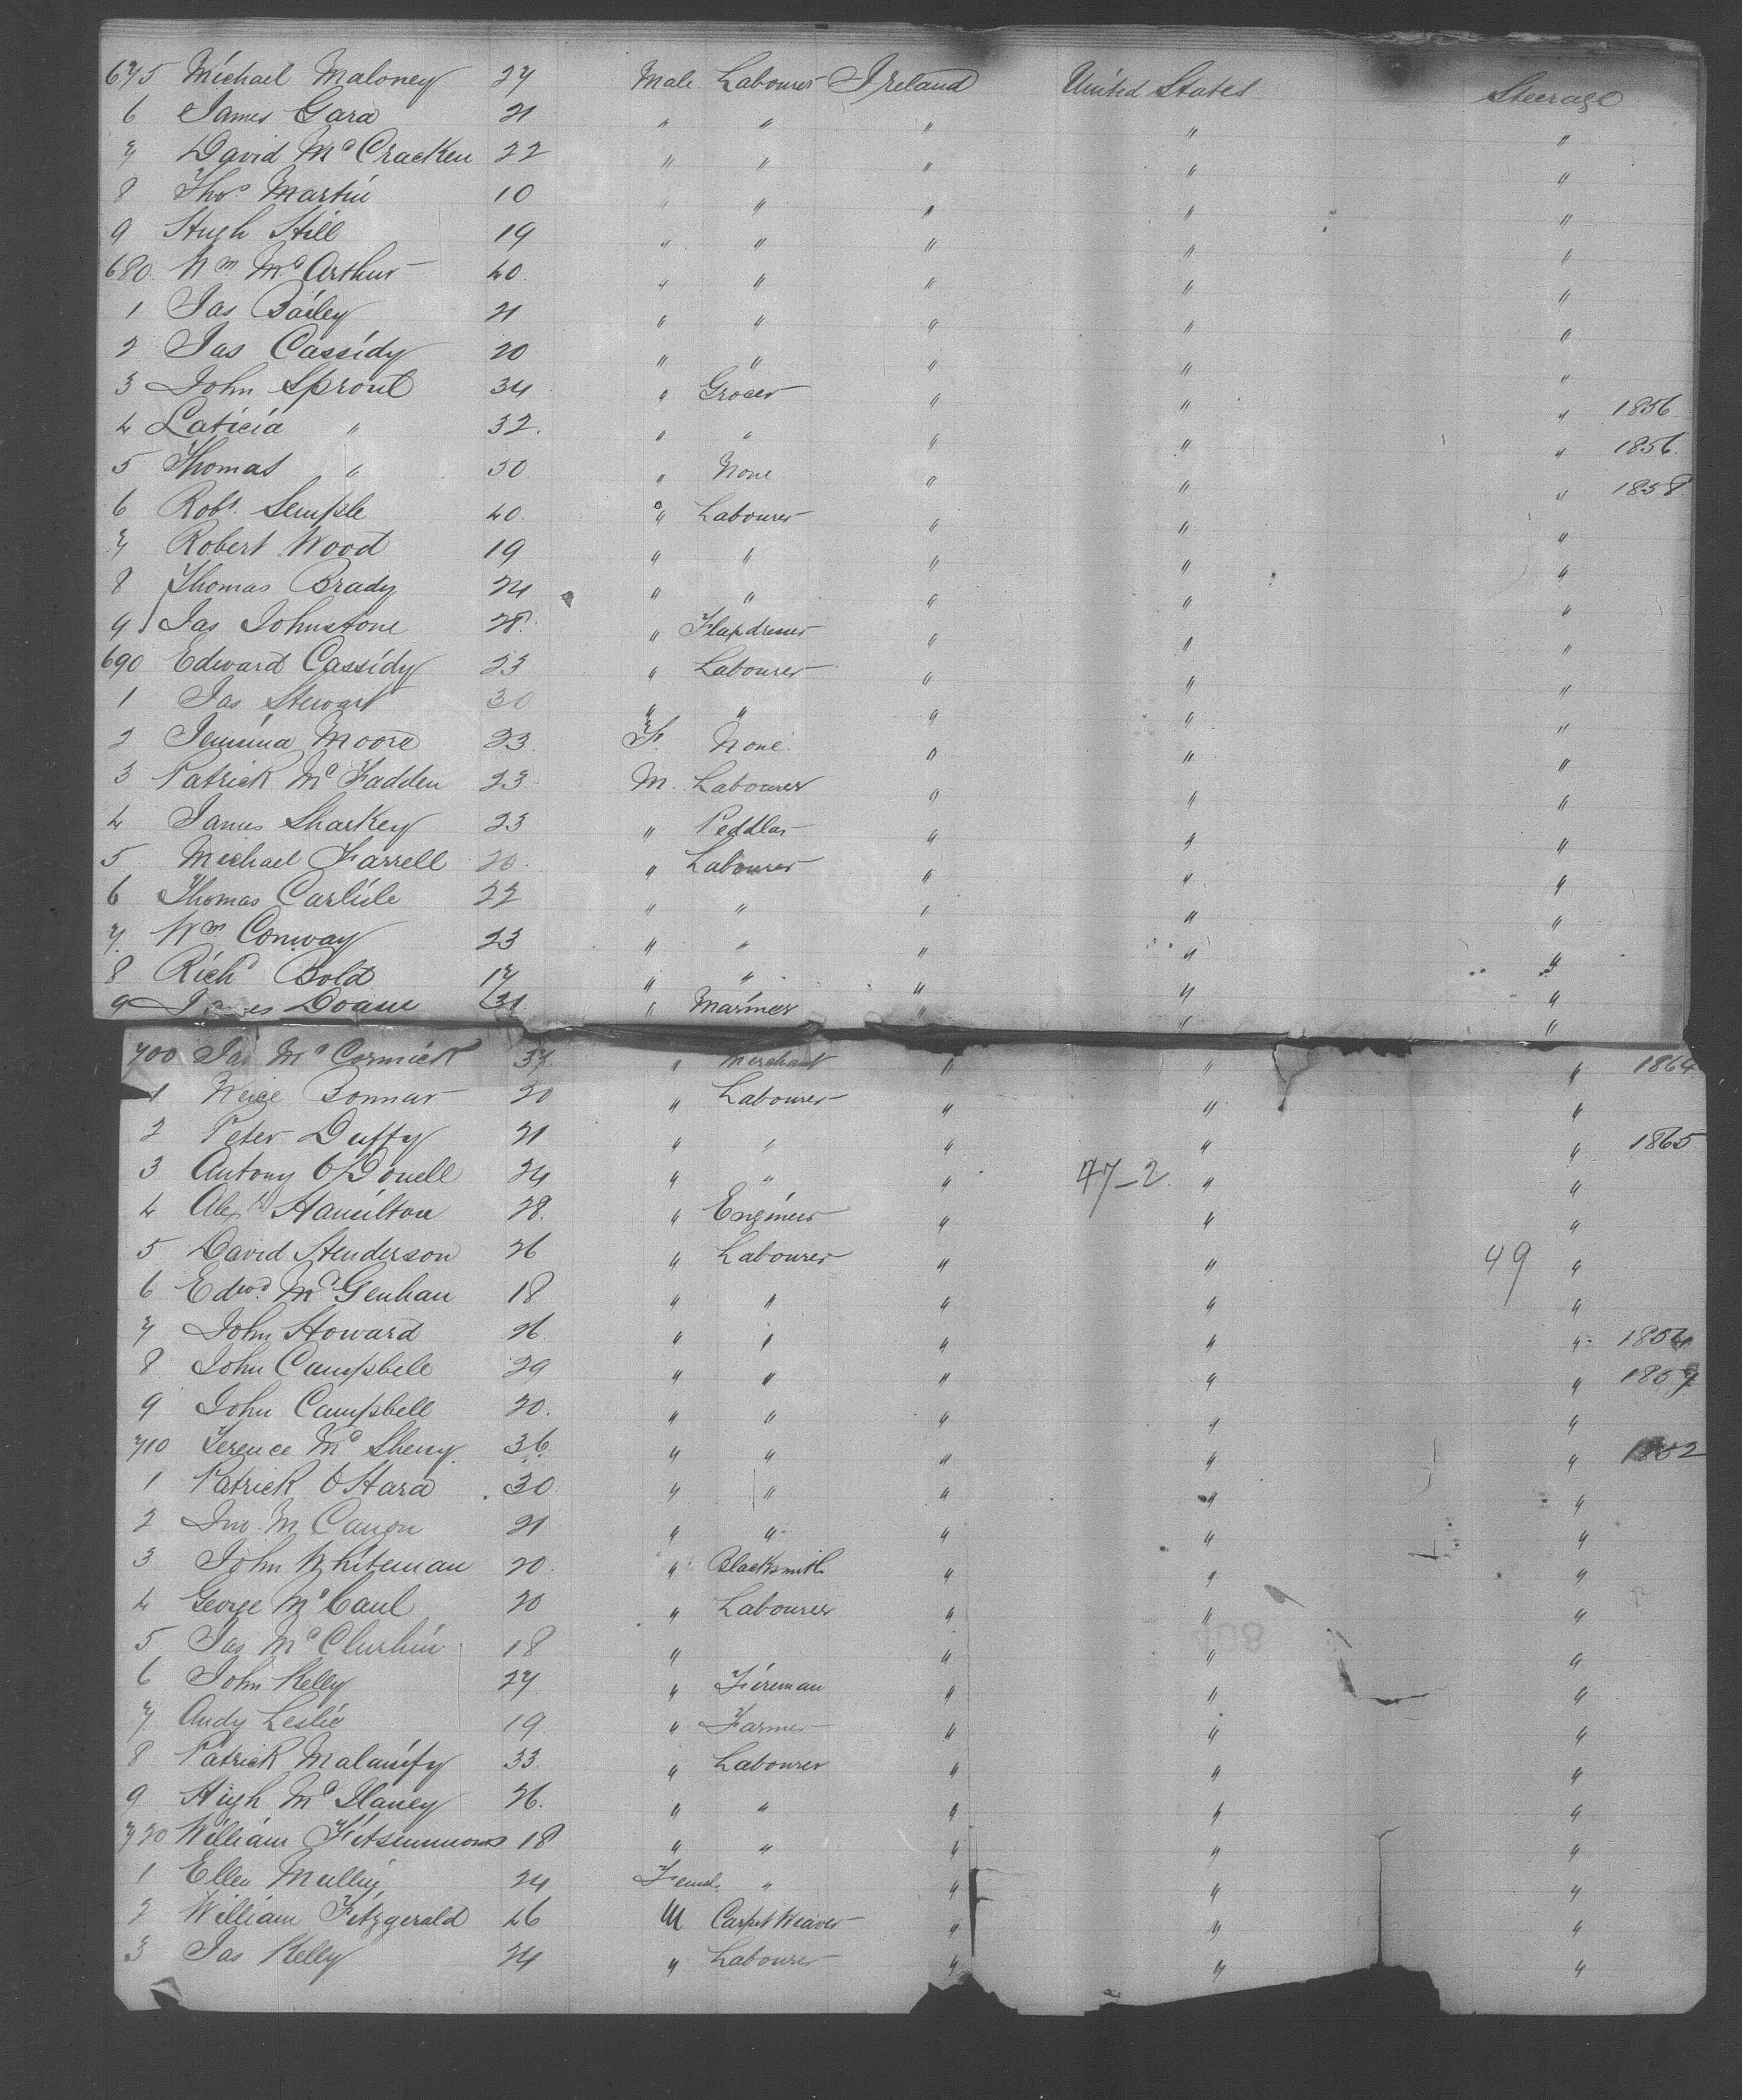 675 Michael Maloney 27 Male Labourer Ireland United States Steerage
6 James Gara 21 " " " " "
7 David McCracken 22 " " " " "
8 Thos Martin 10 " " " " "
9 Hugh Hill 19 " " " " "
680 Wm McArthur 40 " " " " "
1 Jas Bailey 21 " " " " "
2 Jas Cassidy 20 " " " " "
3 John Sproul 34 " Grocer " " " 1856
4 Laticia " 32 " " " " " 1856
5 Thomas " 50 " None " " " 1858
6 Robt Semple 40 " Labourer " " "
7 Robert Wood 19 " " " " "
8 Thomas Brady 24 " " " " "
9 Jas Johnstone 28 " Flaxdresser " " "
690 Edward Cassidy 23 " Labourer " " "
1 Jas Stewart 30 " " " " "
2 Jemima Moore 23 F. None " " "
3 Patrick McFadden 23 M. Labourer " " "
4 James Sharkey 23 " Peddlar " " "
5 Michael Farrell 20 " Labourer " " "
6 Thomas Carlisle 22 " " " " "
7 Wm Conway 23 " " " " "
8 Richd Bold 17 " " " " "
9 James Doane 31 " Mariner " " "
700 Jas McCormick 37 " Merchant " " " 1864
1 Bonnar 20 " Labourer " " "
2 Peter Duffy 21 " " " " " 1865
3 Antony O'Donell 24 " " " 47-2 " "
4 Alexr Hamilton 28 " Engineer " " "
5 David Henderson 26 " Labourer " " 49 "
6 Edwd McGenhan 18 " " " " "
7 John Howard 26 " " " " " 1854
8 John Campbell 29 " " " " " 1857
9 John Campbell 20 " " " " "
710 Terence McSherry 36 " " " " " 1852
1 Patrick O'Hara 30 " " " " "
2 Jno. McCanon 21 " " " " "
3 John Whiteman 20 " Blacksmith " " "
4 George McCaul 20 " Labourer " " "
5 Jas 18 " " " "
6 John Kelly 27 " Fireman " " "
7 Andy Leslie 19 " Farmer " " "
8 Patrick Malanify 33 " Labourer " " "
9 Hugh McIlaney 26 " " " " "
720 William Fitsimmons 18 " " " " "
1 Ellen Mullin 24 Femal. " " " "
2 William Fitzgerald 46 M Carpet Weaver " " "
3 Jas Kelly 24 " Labourer " " "